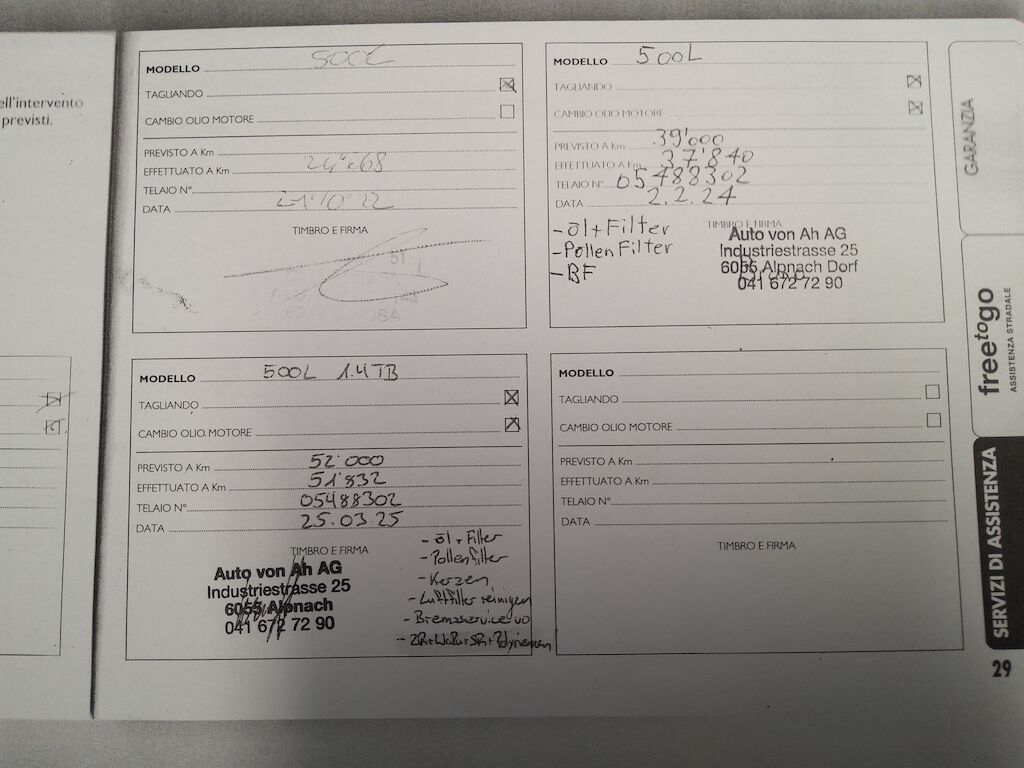 ell'intervento
previsti.
MODELLO 500L
TAGLIANDO
CAMBIO OLIO MOTORE
PREVISTO A Km
EFFETTUATO A Km
TELAIO N°
DATA 21'10'22
TIMBRO E FIRMA
MODELLO 500L
TAGLIANDO
CAMBIO OLIO MOTORE
PREVISTO A Km 39'000
EFFETTUATO A Km 37'840
TELAIO N° 05488302
DATA 2.2.24
TIMBRO E FIRMA
- öl + Filter
- Pollen Filter
- BF
Auto von Ah AG
Industriestrasse 25
6055 Alpnach Dorf
041 672 72 90
MODELLO 500L 1.4TB
TAGLIANDO
CAMBIO OLIO MOTORE
PREVISTO A Km 52'000
EFFETTUATO A Km 51'832
TELAIO N° 05488302
DATA 25.03.25
TIMBRO E FIRMA
Auto von Ah AG
Industriestrasse 25
6055 Alpnach
041 672 72 90
- öl + Filter
- Pollenfilter
- Kerzen
- Luftfilter reinigen
- Bremsservice vo
- ZR + WaPu + SR + Polyriemen
MODELLO
TAGLIANDO
CAMBIO OLIO MOTORE
PREVISTO A Km
EFFETTUATO A Km
TELAIO N°
DATA
TIMBRO E FIRMA
GARANZIA
free to go
ASSISTENZA STRADALE
SERVIZI DI ASSISTENZA
29